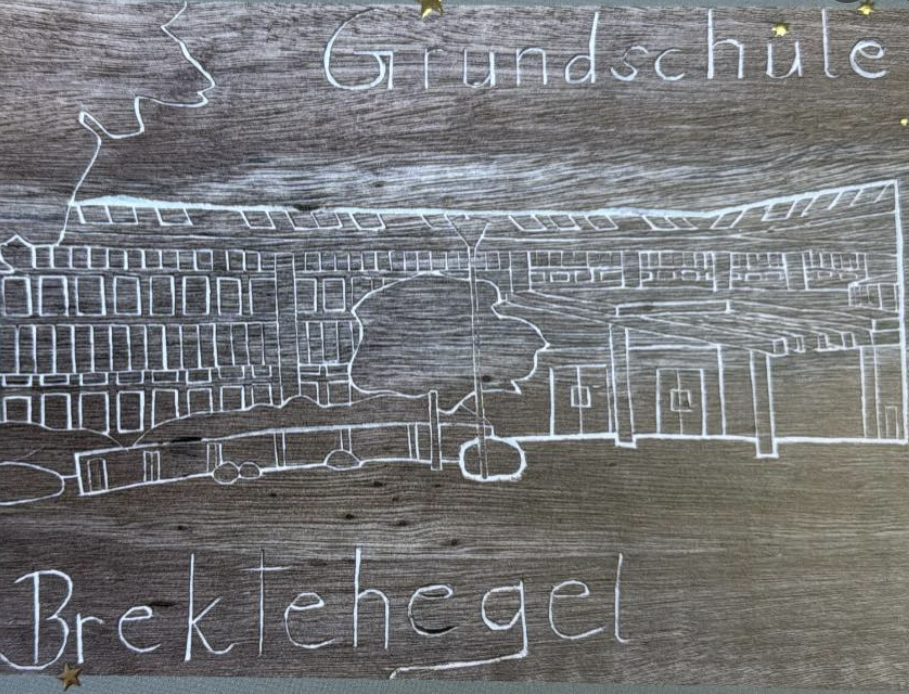 Grundschule
Brektehegel